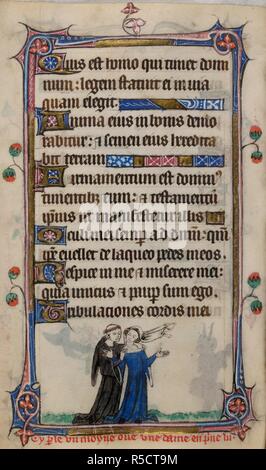 Quis est homo qui timet domi
num: legem statuit ei in via
quam elegit.
Anima eius in bonis demo
rabitur: et semen eius heredita
bit terram
Firmamentum est domin'
timentibus eum: et testamentum
ipsius ut manifestetur illis
Oculi mei semp ad dnm: qm
ipe euellet de laqueo pedes meos.
Respice in me et miserere mei:
quia unicus et paup sum ego.
Tribulationes cordis mei
Cy ple un moyne oue une dame en
alamy
Image ID: R5CT9M
www.alamy.com